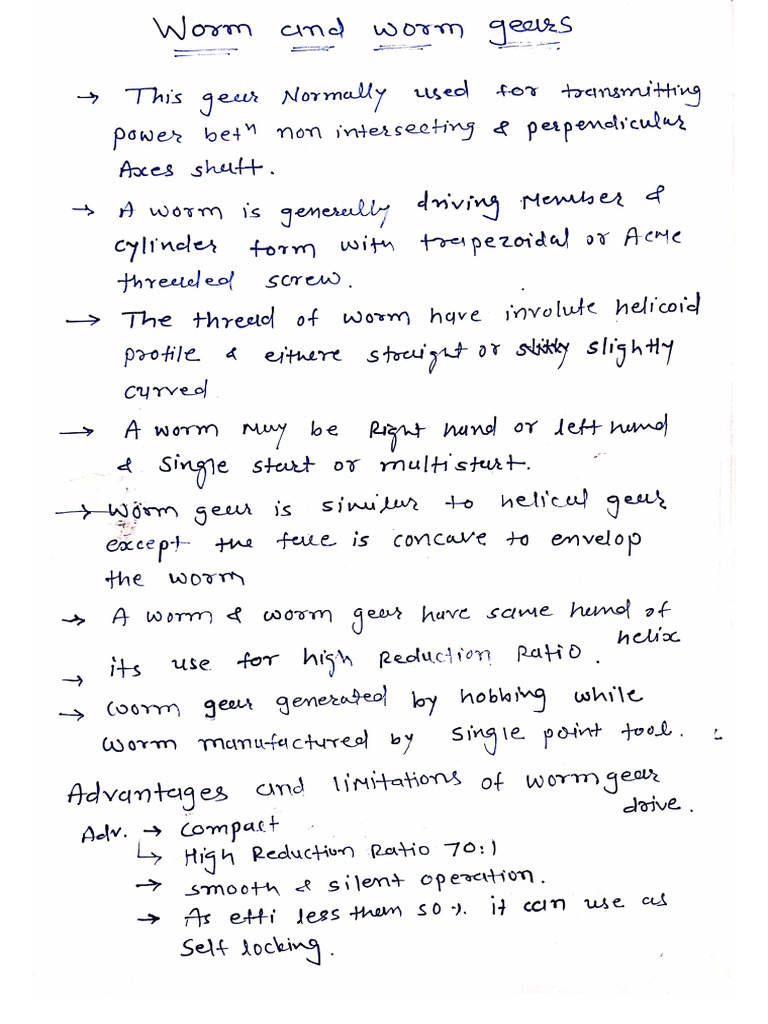 Worm and worm gears
→ This gear Normally used for transmitting
power betⁿ non intersecting & perpendicular
Axes shaft.
→ A worm is generally driving Member &
cylinder form with trapezoidal or Acme
threaded screw.
→ The thread of worm have involute helicoid
profile & eithere straight or slightly
curved
→ A worm May be Right hand or left hand
& single start or multistart.
→ Worm gear is similar to helical gear
except the face is concave to envelop
the worm
→ A worm & worm gear have same hand of
helix
→ its use for high Reduction Ratio.
→ Worm gear generated by hobbing while
worm manufactured by single point tool.
Advantages and limitations of worm gear
drive.
Adv. → compact
↳ High Reduction Ratio 70:1
→ smooth & silent operation.
→ As effi less then 50%. it can use as
Self locking.